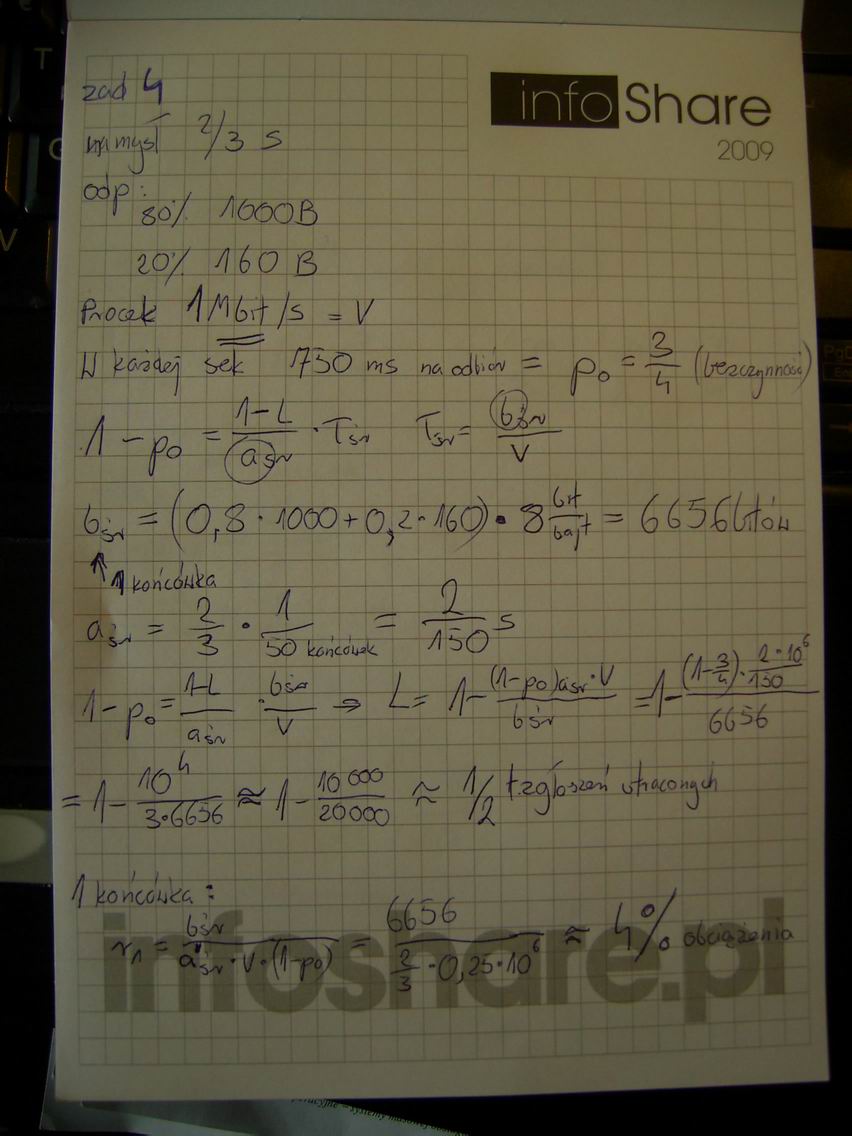 infoShare
2009
zad 4
namysł 2/3 s
odp:
80% 1000B
20% 160 B
Procek 1Mbit/s = V
W każdej sek 750 ms na odbiór = p₀ = 3/4 (bezczynność)
1 - p₀ = (1-L)/aśr · Tśr Tśr = bśr/V
bśr = (0,8·1000+0,2·160)·8 bit/bajt = 6656 bitów
↑ 1 końcówka
aśr = 2/3 · 1/50 końcówek = 2/150 s
1-p₀ = (1-L)/aśr · bśr/V ⇒ L = 1 - (1-p₀)aśr·V/bśr = 1 - (1-3/4)·(2·10⁶/150)/6656
= 1 - 10⁴/(3·6656) ≈ 1 - 10000/20000 ≈ 1/2 zgłoszeń utraconych
1 końcówka:
r₁ = bśr/(a'śr·V·(1-p₀)) = 6656/(2/3·0,25·10⁶) ≈ 4% obciążenia
infoshare.pl